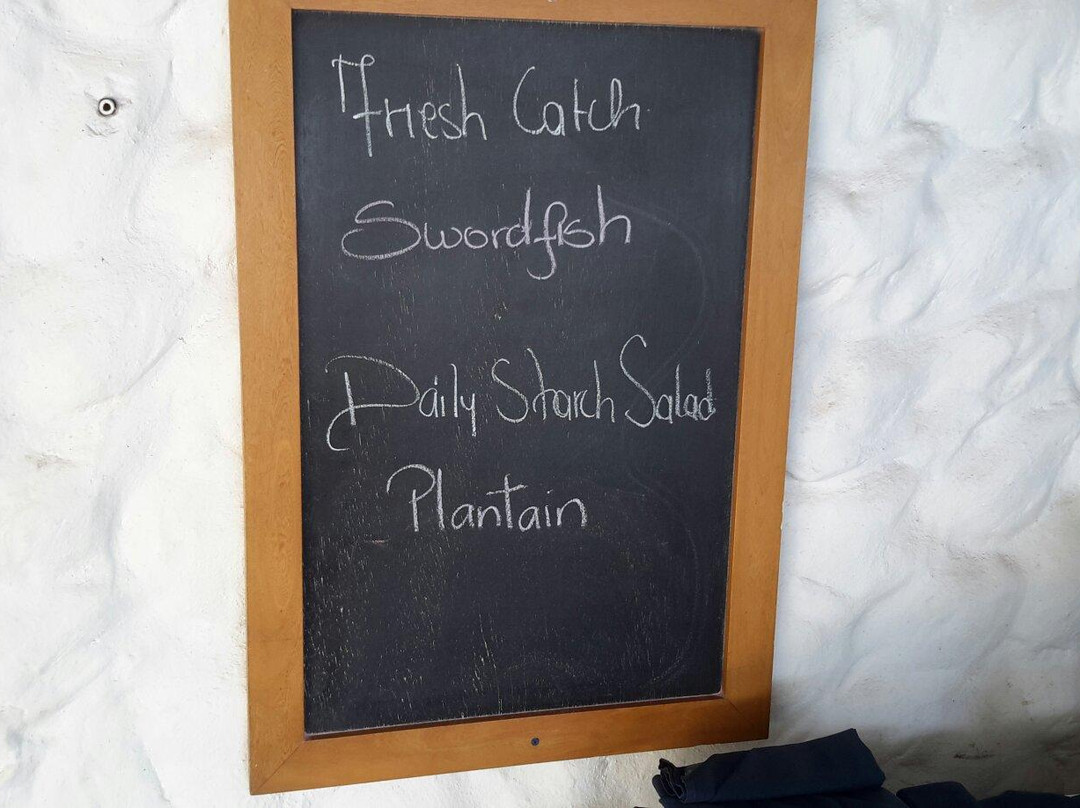 Fresh Catch
Swordfish
Daily Starch Salad
Plantain